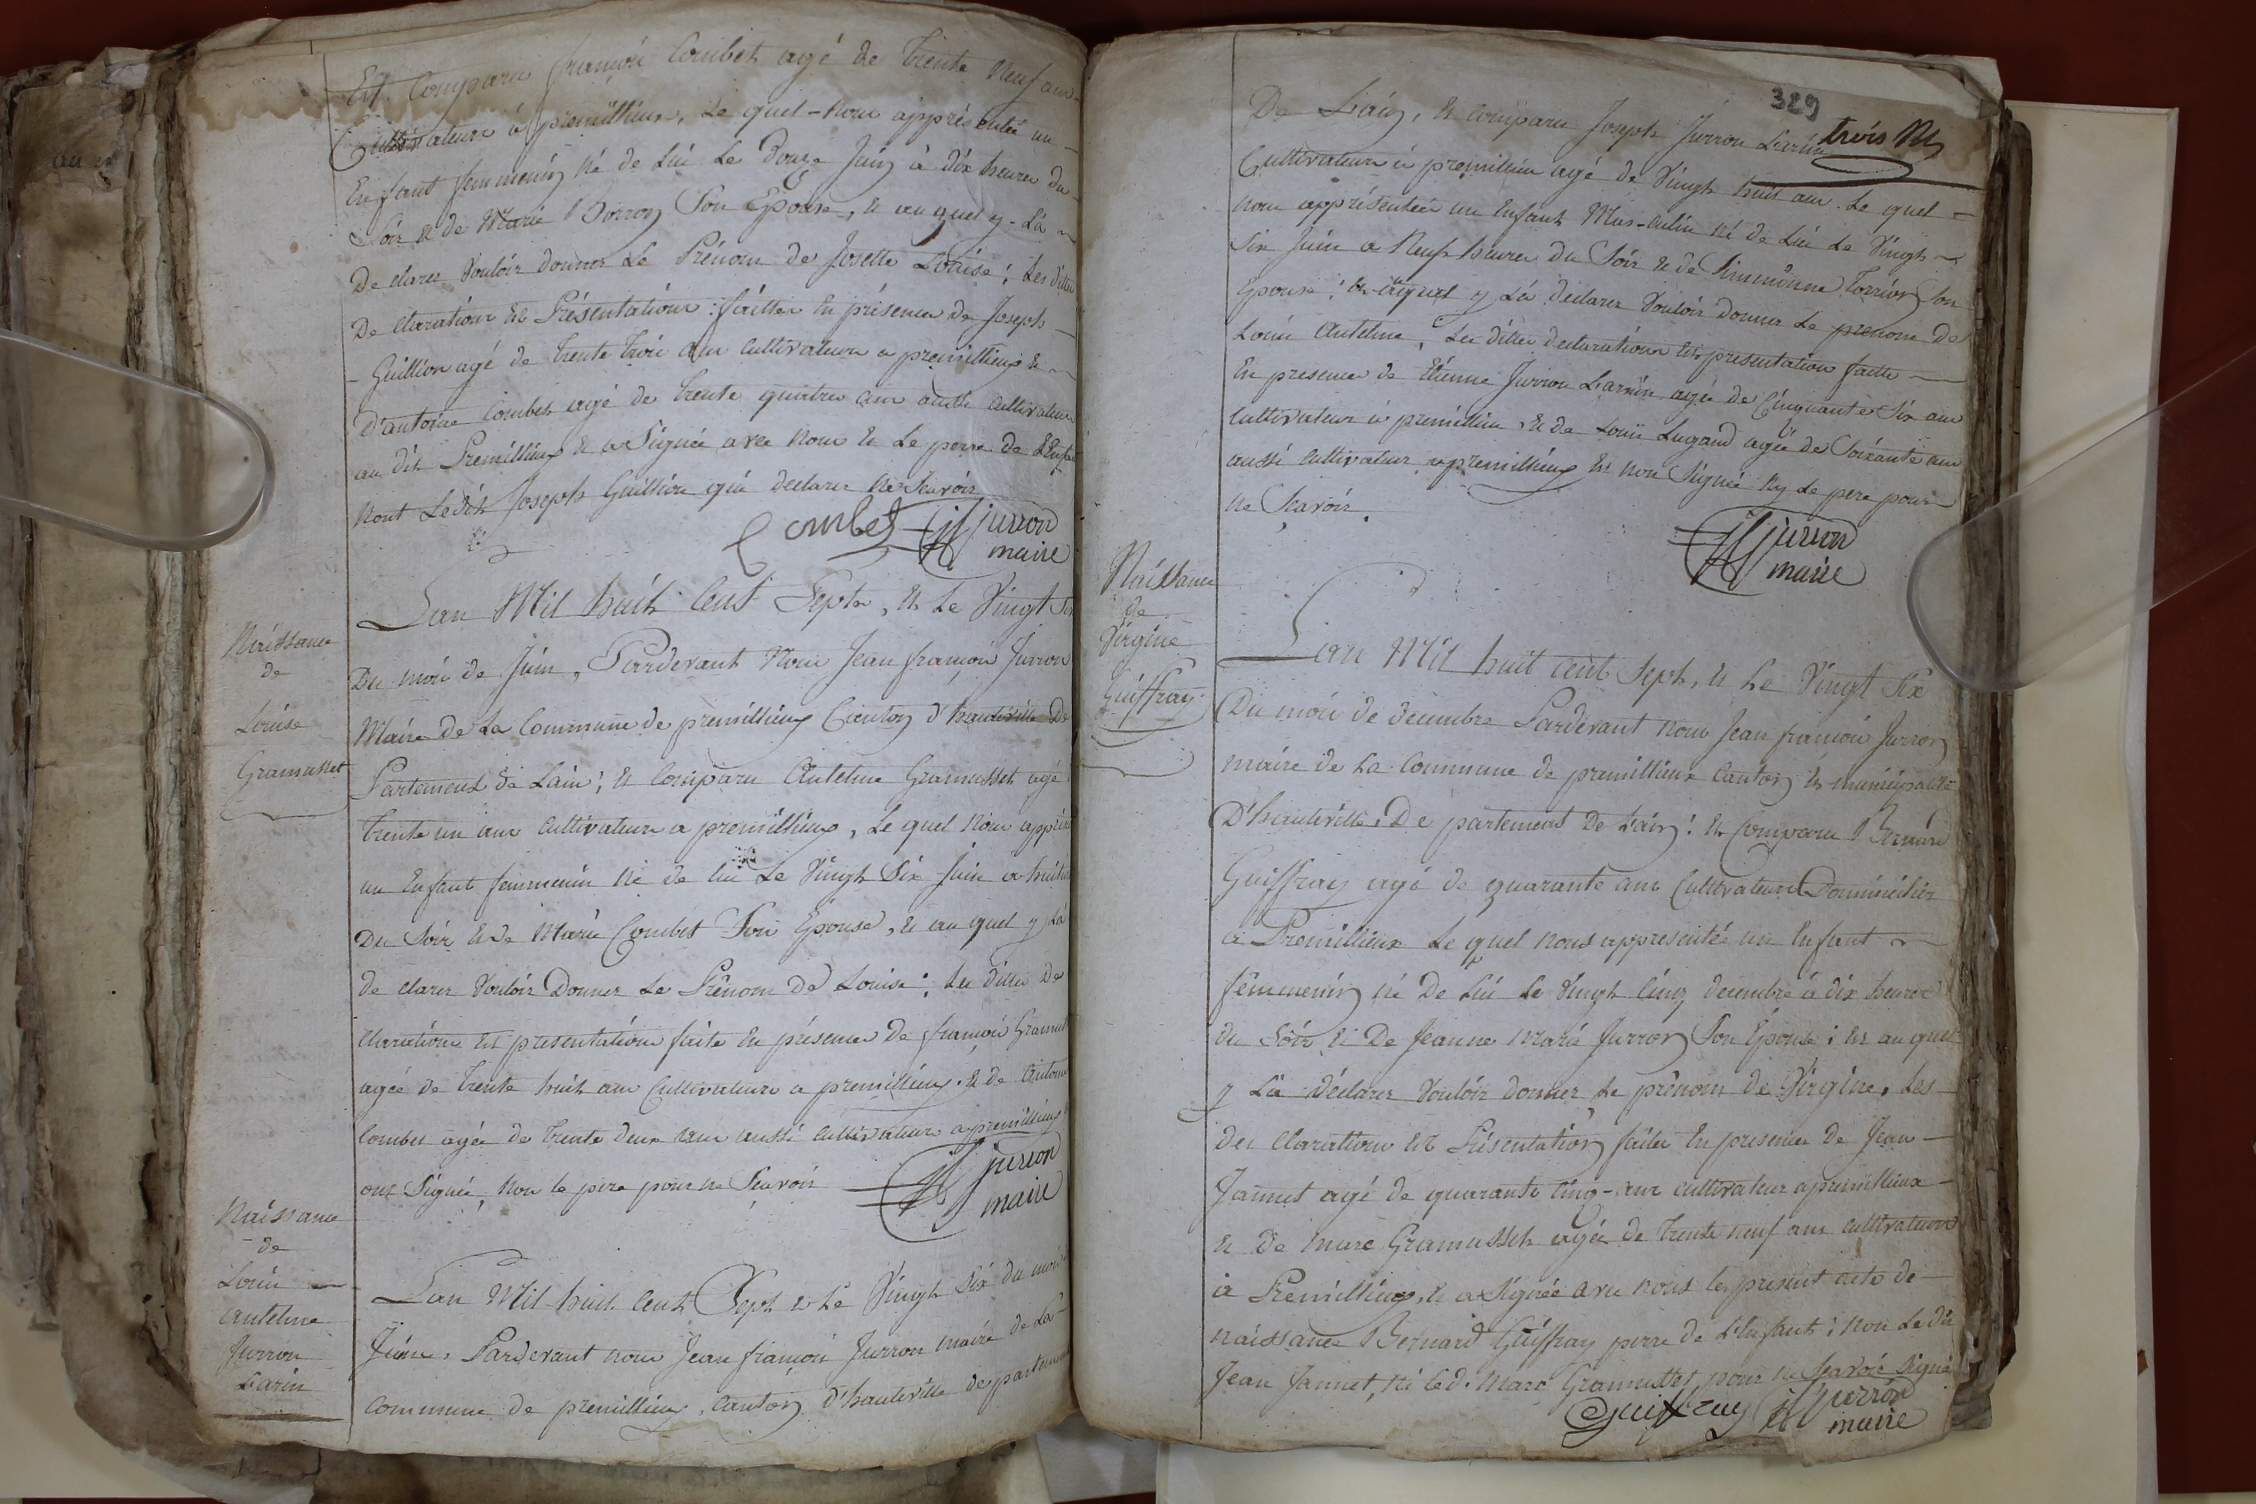 Est Comparu françois Combet agé de trente neuf ans
Cultivateur a premillieux, Le quel nous apprésentée un
Enfant femmenin né de Lui Le Douze Juin à dix heures du
Soir & de Marie Borron Son Epouse, & au quel y La
De clarer Vouloir donner Le Prénom de Josette Louise; Les dittes
De clarations Et Présentations: faittes En présence de Joseph
Guillion agé de trente trois ans cultivateur a premillieux &
D'antoine Combet agé de trente quatres ans aussi cultivateur
au dit Premillieux & a Signée avec Nous & Le perre de L'Enfant
Nont Ledit Joseph Guillion qui declarer Ne Scavoir
Combet JF jurron
maire
Naissance
de
Louise
Gramusset
Lan Mil huit Cent Sept, & Le Vingt Six
Du mois de Juin, Pardevant Nous Jean françois Jurron
Maire de La Commune de premillieux Canton d'hauteville De
Partement de Lain; & Comparu Antelme Gramusset agé
trente un ans cultivateur a premillieux, Le quel Nous apprés
un Enfant femmenin Né de lui Le Vingt Six Juin a huit h
Du Soir & de Marie Combet Son Epouse, & au quel y La
de clarer Vouloir Donner Le Prénom de Louise; Les dittes De
clarations Et presentations faite En présence de françois Gramus
agée de trente huit ans Cultivateur a premillieux & de Antoine
Combet agée de trente deux ans aussi cultivateur a premillieux
ont Signée, Non le pere pour ne Scavoir
JF jurron
maire
Naissance
de
Louis
antelme
Jurron
Larin
Lan Mil huit Cent Sept & Le Vingt Six du mois
Juin, Pardevant nous Jean françois Jurron maire de La
Commune de premillieux, Canton d'hauteville departement
329
trois
De L'ain, & comparu Joseph Jurron Larin
Cultivateur a premillieu agé de Vingt huit ans Le quel
nous apprésentée un Enfant Mas-culin né de Lui Le Vingt
Six Juin a Neuf heures du Soir & de Simmonne Torrion Son
Epouse; & auquel y La declarer Vouloir donner Le prenom De
Louis Antelme, Les dittes declarations Et presentation faitte
En presence de Etienne Jurron Larrin agée de Cinquante Six ans
cultivateur a premillieu, & de Louis Lugand agée de Soixante ans
aussi cultivateur a premillieux Et Non Signée Ny Le pere pour
ne Scavoir.
JF jurron
maire
Naissance
de
Virgine
Guiffray
Lan Mil huit cent Sept, & Le Vingt Six
Du mois de decembre Pardevant Nous Jean françois Jurron
maire de La Commune de premillieux Canton & municipalité
D'hauteville, De partement De L'ain; & Comparu Bernard
Guiffray agé de quarante ans Cultivateur Dommicilier
a Premillieux Le quel Nous apprésentée un Enfant
femmenin né De Lui Le Vingt Cinq decembre à dix heures
du Soir & De Jeanne Marie Jurron Son Epouse; & au quel
y La déclarer Vouloir donner Le prénom de Virgine, Les
des Clarations Et Présentation faites En presence De Jean
Jannet agé de quarante cinq ans cultivateur a premillieux
& De Marc Gramusset agée de trente neuf ans cultivateur
à Premillieux, & a Signée avec nous le present acte de
naissance Bernard Guiffray perre de L'enfant; non Le dit
Jean Jannet, Ni led. Marc Gramusset, pour ne Scavoir Signé
Guiffray JF Jurron
maire